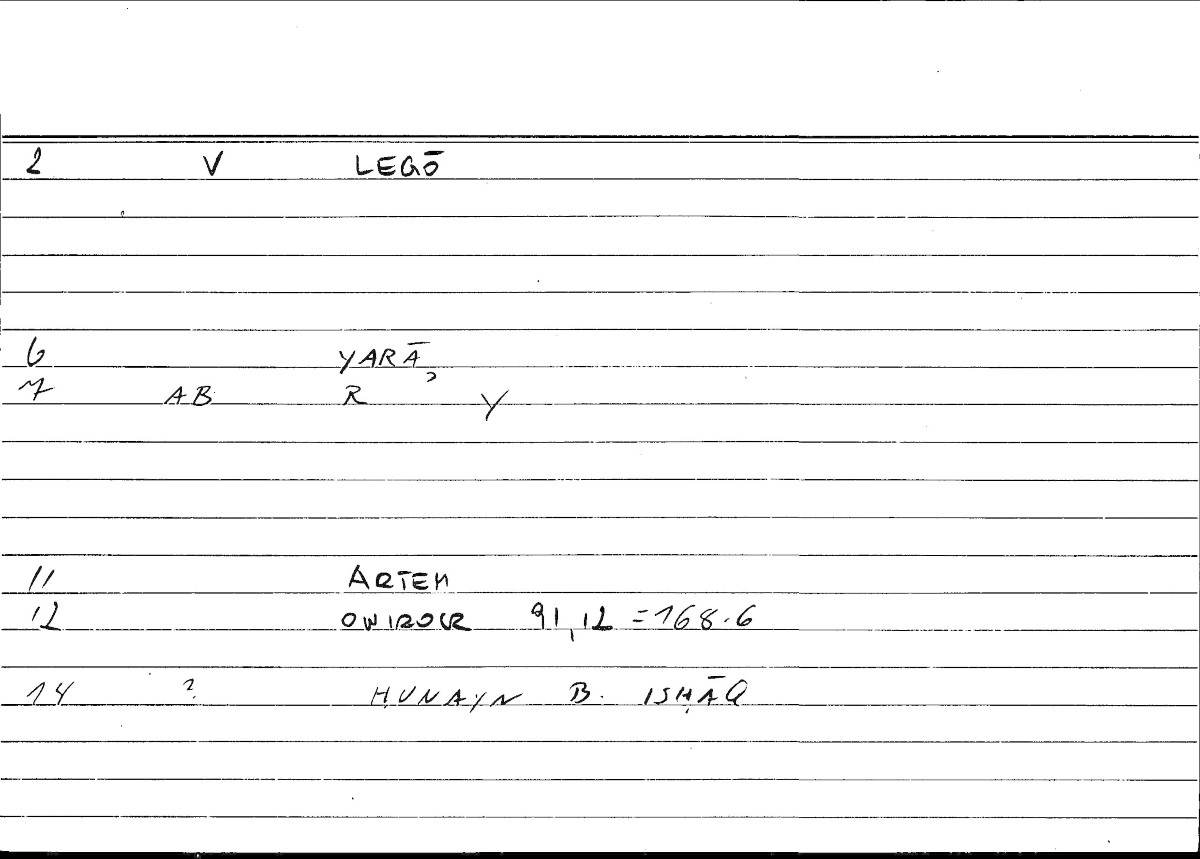 2 V LEGŌ
6 YARĀʾ
7 AB R Y
11 ARTEM
12 91,12 = 168.6
14 ? ḤUNAYN B. ISḤĀQ